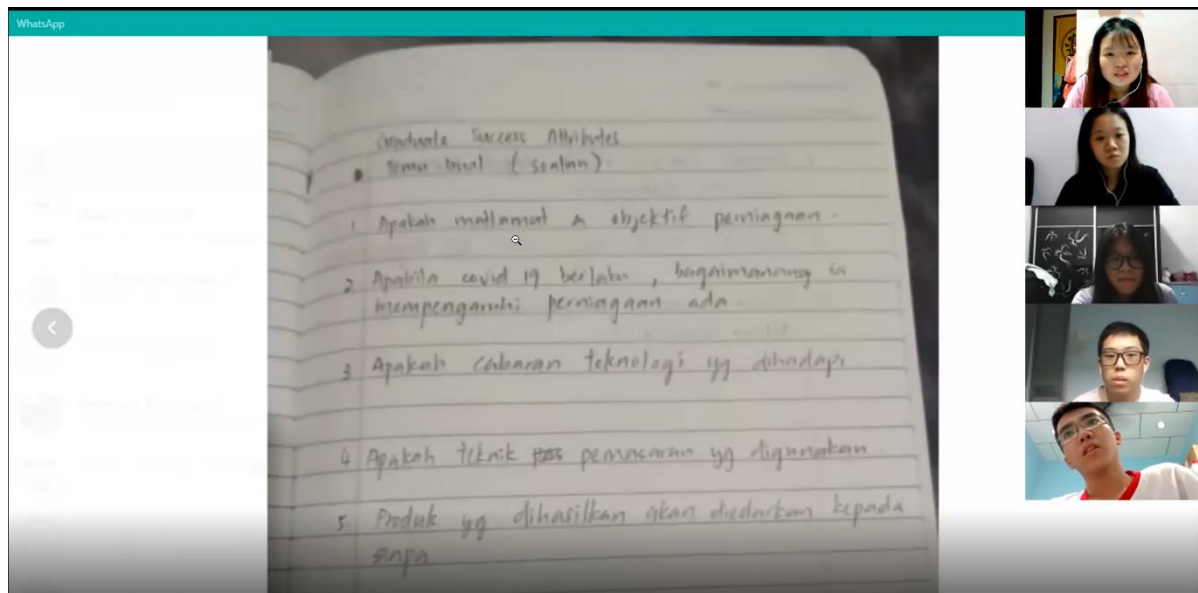 WhatsApp
Graduate Success Attributes
Temu bual (soalan)
1. Apakah matlamat & objektif perniagaan.
2 Apabila covid 19 berlaku, bagaimana ia
mempengaruhi perniagaan ada
3 Apakah cabaran teknologi yg dihadapi
4 Apakah teknik pemasaran yg digunakan
5. Produk yg dihasilkan akan diedarkan kepada
siapa